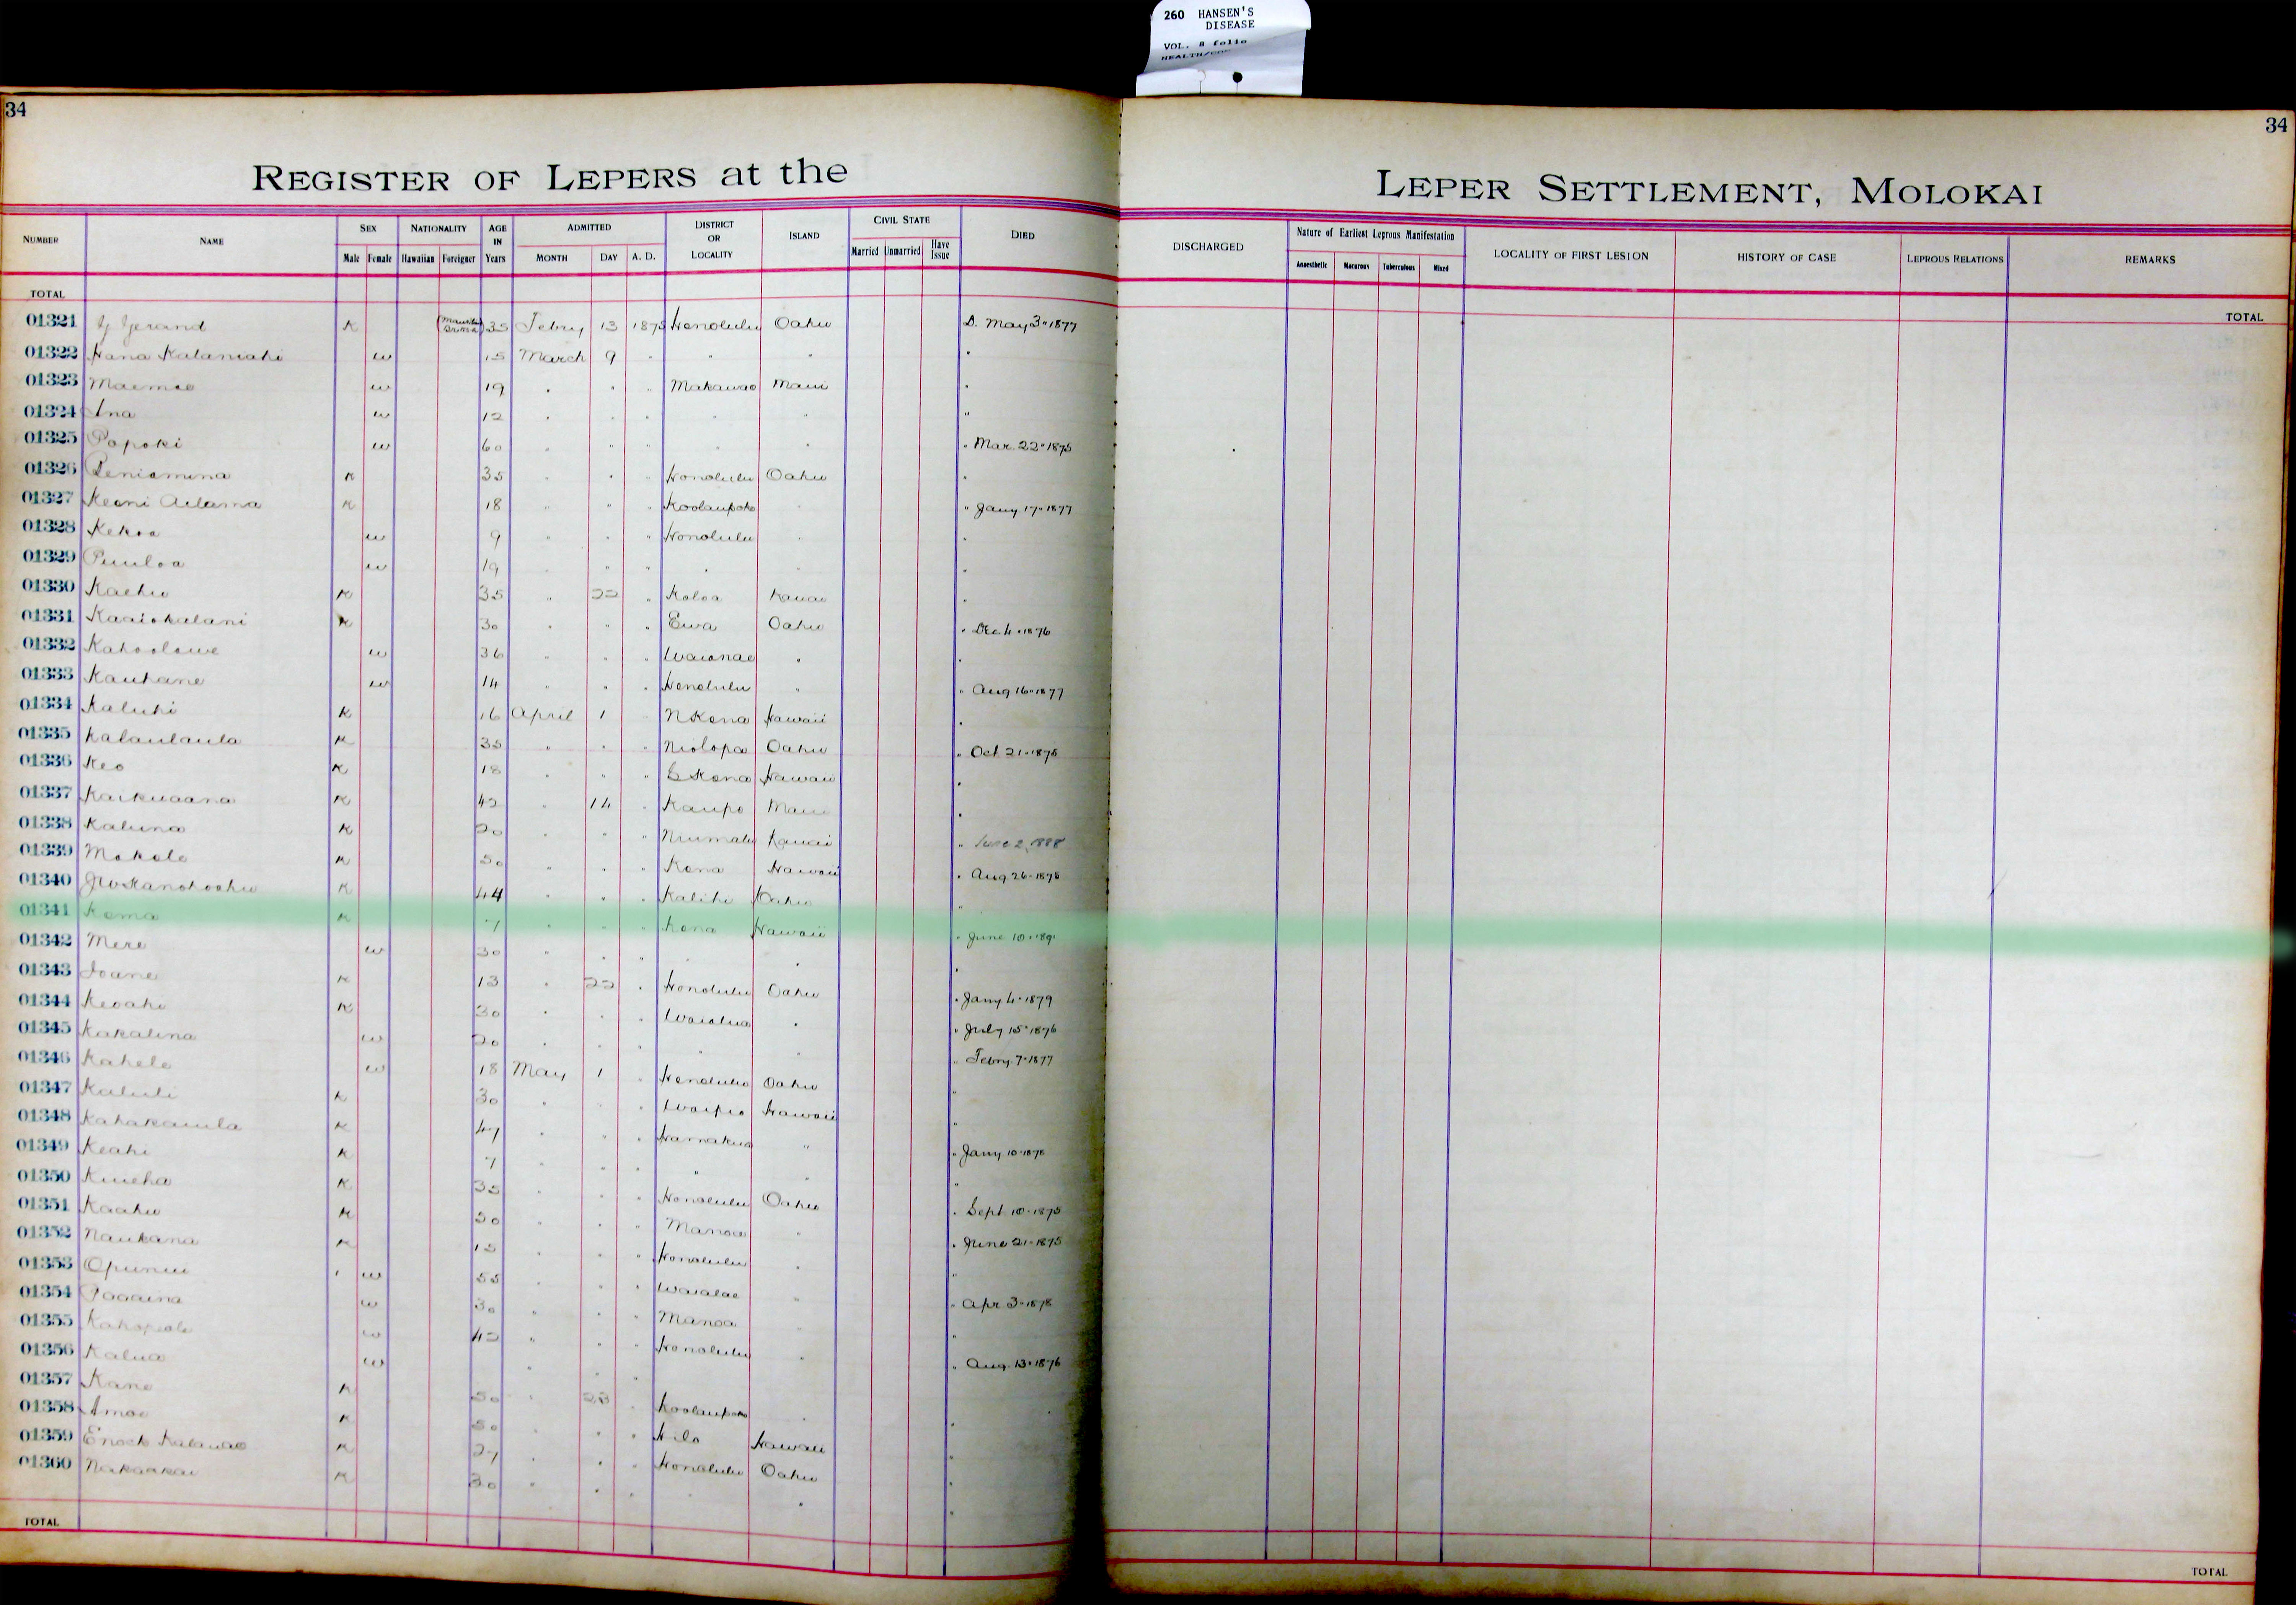 260 HANSEN'S
DISEASE
VOL. 8 folio
34
34
REGISTER OF LEPERS at the
LEPER SETTLEMENT, MOLOKAI
NUMBER NAME SEX NATIONALITY AGE IN Years ADMITTED DISTRICT OR LOCALITY ISLAND CIVIL STATE DIED
Male Female Hawaiian Foreigner MONTH DAY A. D. Married Unmarried Have Issue
DISCHARGED Nature of Earliest Leprous Manifestation LOCALITY OF FIRST LESION HISTORY OF CASE LEPROUS RELATIONS REMARKS
Anaesthetic Macurous Tuberculous Mixed
TOTAL
TOTAL
01321 Gerand K 35 Febry 13 1875 Honolulu Oahu D. May 3 " 1877
01322 Hana Kalaniahi w 15 March 9 " " " "
01323 Maemae w 19 " " " Makawao Maui "
01324 Ana w 12 " " " " " "
01325 Popoki w 60 " " " " " " Mar 22 " 1875
01326 Beniamina K 35 " " " Honolulu Oahu "
01327 Keoni Adama K 18 " " " Koolaupoko " " Jany 17 " 1877
01328 Kekoa w 9 " " " Honolulu " "
01329 Puuloa w 19 " " " " " "
01330 Kaehu K 35 " 22 " Koloa Kauai "
01331 Kaaiokalani K 30 " " " Ewa Oahu " Dec 4 " 1876
01332 Kahoolawe w 36 " " " Waianae " "
01333 Kauhane w 14 " " " Honolulu " " Aug 16 " 1877
01334 Kaluhi K 16 April 1 " N Kona Hawaii "
01335 Kalaulaula K 35 " " " Niolopa Oahu " Oct 21 " 1875
01336 Keo K 18 " " " S Kona Hawaii "
01337 Kaikuaana K 42 " 14 " Kaupo Maui "
01338 Kaluna K 20 " " " Niumalu Kauai " June 2, 1888
01339 Makole K 50 " " " Kona Hawaii " Aug 26 " 1878
01340 K 44 " " " Kalihi Oahu "
01341 Kema K 7 " " " Kona Hawaii " June 10 "
01342 Mere w 30 " " " " " "
01343 Ioane K 13 " 22 " Honolulu Oahu " Jany 4 " 1879
01344 Keoahi K 30 " " " Waialua " " July 15 " 1876
01345 Kakalina w 20 " " " " " " Febry 7 " 1877
01346 Kahele w 18 May 1 " Honolulu Oahu "
01347 Kaluli K 30 " " " Waipio Hawaii "
01348 Kahakauila K 47 " " " Hamakua " " Jany 10 " 1878
01349 Keahi K 7 " " " " " "
01350 Kuheha K 35 " " " Honolulu Oahu " Sept 10 " 1875
01351 Kaahu K 50 " " " Manoa " " June 21 " 1875
01352 Naukana K 15 " " " Honolulu " "
01353 Opunui w 55 " " " Waialae " " Apr 3 " 1878
01354 Paaaina w 30 " " " Manoa " "
01355 w 42 " " " Honolulu " " Aug 13 " 1876
01356 Kalua w " " "
01357 Kane K 50 " 28 " Koolaupoko " "
01358 Amoe K 50 " " " Hilo Hawaii "
01359 Enoch Kalauao K 27 " " " Honolulu Oahu "
01360 Nakaikai K 30 " " " " " "
TOTAL
TOTAL